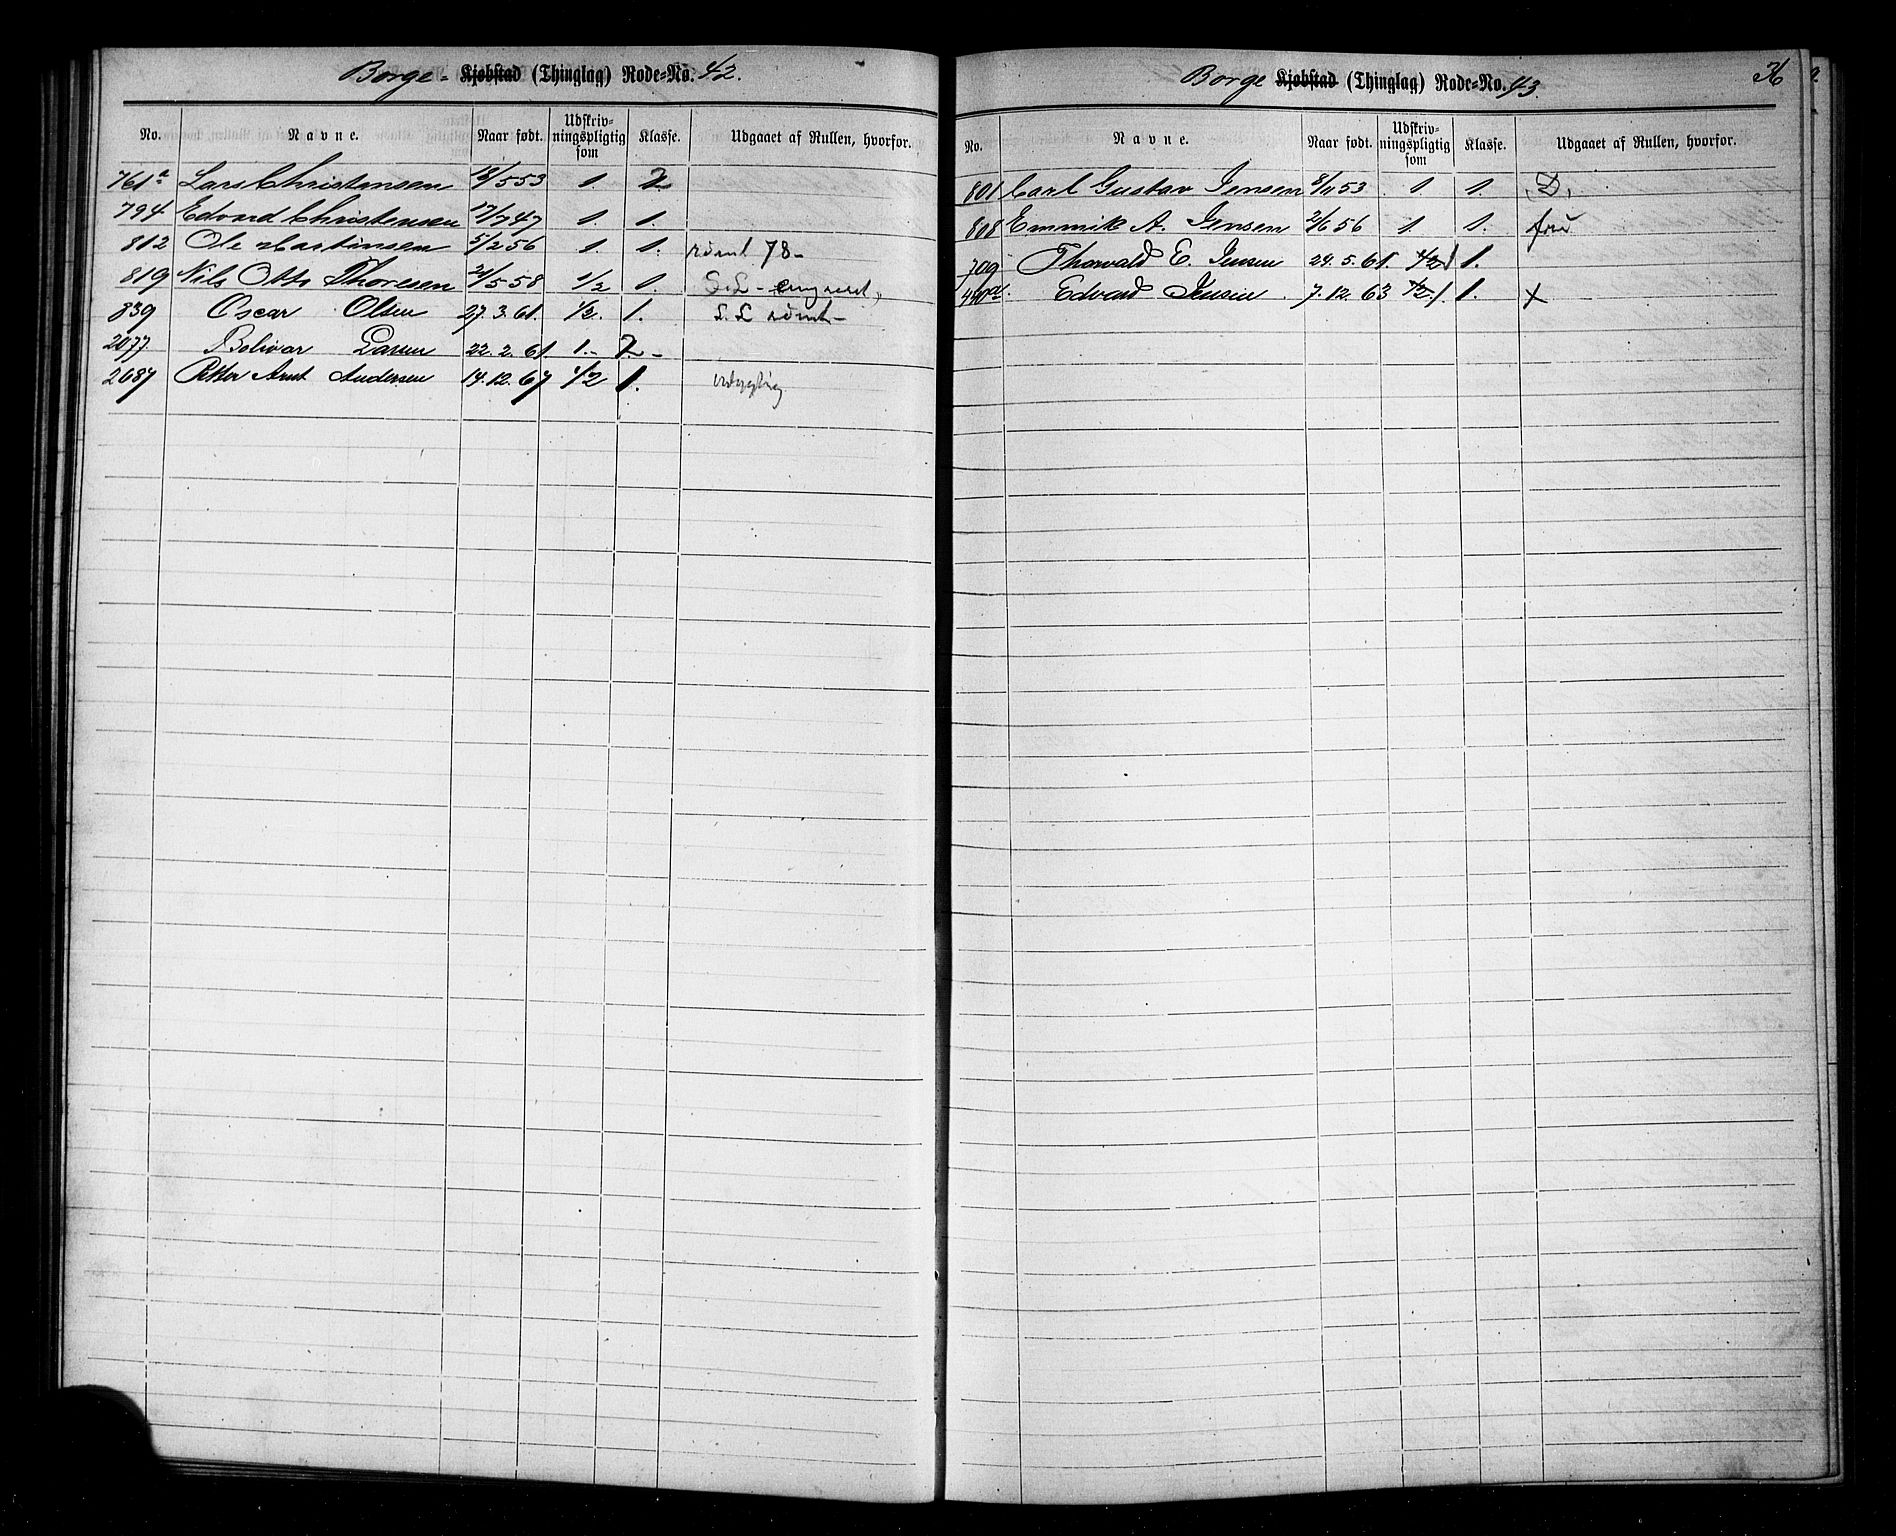 Borge - Kjøbstad (Thinglag) Rode=No. 42.
No. Navne. Naar født. Udskriv-ningspligtig som Klasse. Udgaaet af Rullen, hvorfor.
761a Lars Christensen 18/5 53 1. 2
794 Edvard Christensen 17/7 47 1. 1.
812 Ole Martinsen 5/2 56 1. 1. rømt 78-
819 Nils Otto Thoresen 21/5 58 1/2 1. S.L -
839 Oscar Olsen 27.3.61. 1/2. 1. S.L rømt-
2077 Bolivar Larsen 22.2.61 1.- 2-
2687 Petter Arnt Andersen 14.12.67 1/2 1. udygtig
Borge Kjøbstad (Thinglag) Rode=No. 43. 36
No. Navne. Naar født. Udskriv-ningspligtig som Klasse. Udgaaet af Rullen, hvorfor.
801 Carl Gustav Jensen 8/11 53 1 1. D.
808 Emmik A. Jensen 2/6 56 1 1.
709 Thorvald E. Jensen 24.5.61. 1/2 1 1.
Edvard Jensen 7.12.63 1/2 1. 1. X